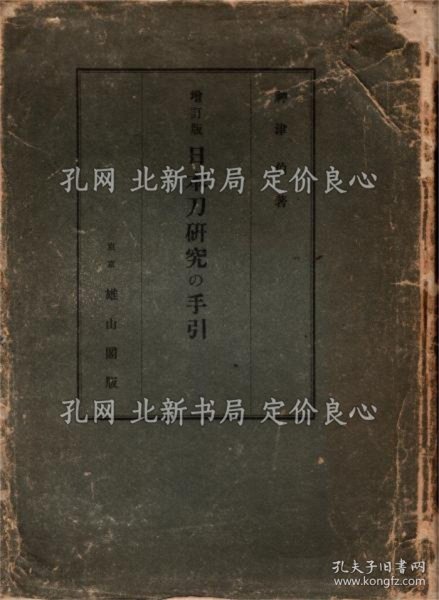 神津 著
増訂版 日本刀研究の手引
東京 雄山閣版
孔网 北新书局 定价良心
孔网 北新书局 定价良心
孔网 北新书局 定价良心
孔夫子旧书网
www.kongfz.com